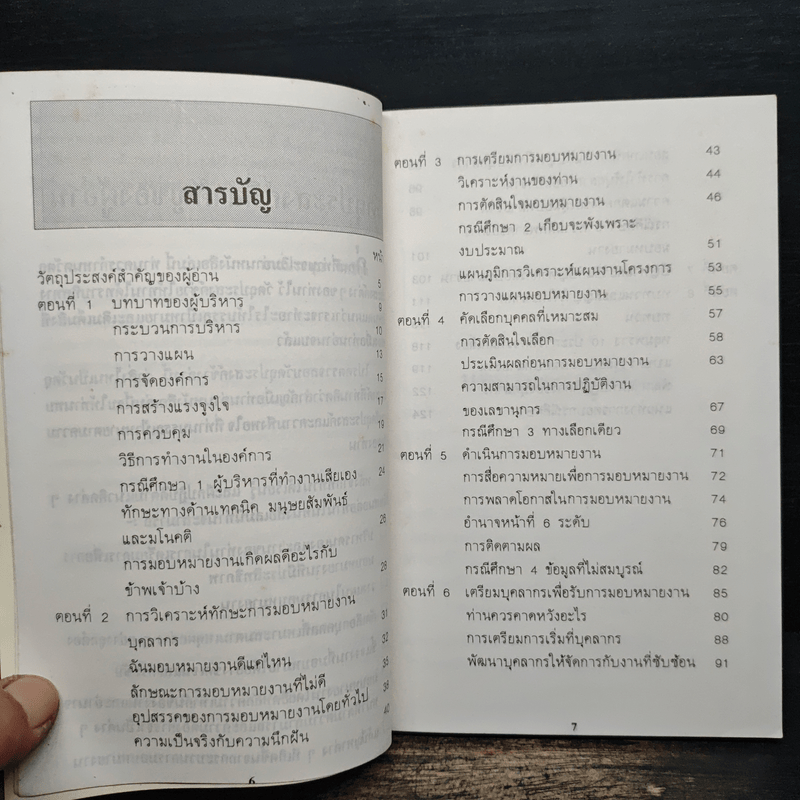 สารบัญ
หน้า
วัตถุประสงค์สำคัญของผู้อ่าน 5
ตอนที่ 1 บทบาทของผู้บริหาร 9
กระบวนการบริหาร 10
การวางแผน 13
การจัดองค์การ 15
การสร้างแรงจูงใจ 17
การควบคุม 19
วิธีการทำงานในองค์การ 21
กรณีศึกษา 1 ผู้บริหารที่ทำงานเสียเอง 24
ทักษะทางด้านเทคนิค มนุษยสัมพันธ์
และมโนคติ 26
การมอบหมายงานเกิดผลดีอะไรกับ
ข้าพเจ้าบ้าง 28
ตอนที่ 2 การวิเคราะห์ทักษะการมอบหมายงาน
บุคลากร 31
ฉันมอบหมายงานดีแค่ไหน 32
ลักษณะการมอบหมายงานที่ไม่ดี 35
อุปสรรคของการมอบหมายงานโดยทั่วไป 38
ความเป็นจริงกับความนึกฝัน 40
6
ตอนที่ 3 การเตรียมการมอบหมายงาน 43
วิเคราะห์งานของท่าน 44
การตัดสินใจมอบหมายงาน 46
กรณีศึกษา 2 เกือบจะพังเพราะ
งบประมาณ 51
แผนภูมิการวิเคราะห์แผนงานโครงการ 53
การวางแผนมอบหมายงาน 55
ตอนที่ 4 คัดเลือกบุคคลที่เหมาะสม 57
การตัดสินใจเลือก 58
ประเมินผลก่อนการมอบหมายงาน 63
ความสามารถในการปฏิบัติงาน
ของเลขานุการ 67
กรณีศึกษา 3 ทางเลือกเดียว 69
ตอนที่ 5 ดำเนินการมอบหมายงาน 71
การสื่อความหมายเพื่อการมอบหมายงาน 72
การพลาดโอกาสในการมอบหมายงาน 74
อำนาจหน้าที่ 6 ระดับ 76
การติดตามผล 79
กรณีศึกษา 4 ข้อมูลที่ไม่สมบูรณ์ 82
ตอนที่ 6 เตรียมบุคลากรเพื่อรับการมอบหมายงาน 85
ท่านควรคาดหวังอะไร 80
การเตรียมการเริ่มที่บุคลากร 88
พัฒนาบุคลากรให้จัดการกับงานที่ซับซ้อน 91
7